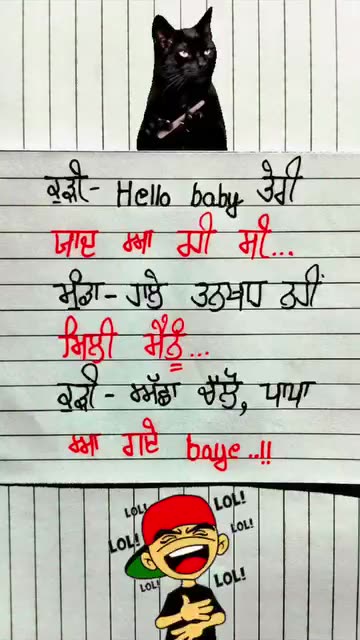 ਕੁੜੀ- Hello baby ਤੇਰੀ
ਯਾਦ ਆ ਰਹੀ ਸੀ...
ਮੁੰਡਾ- ਹਾਲੇ ਤਨਖਾਹ ਨਹੀਂ
ਮਿਲੀ ਮੈਨੂੰ...
ਕੁੜੀ- ਅੱਛਾ ਚੱਲੋ, ਪਾਪਾ
ਆ ਗਏ baye..!!
LOL!
LOL!
LOL!
LOL!
LOL!
LOL!